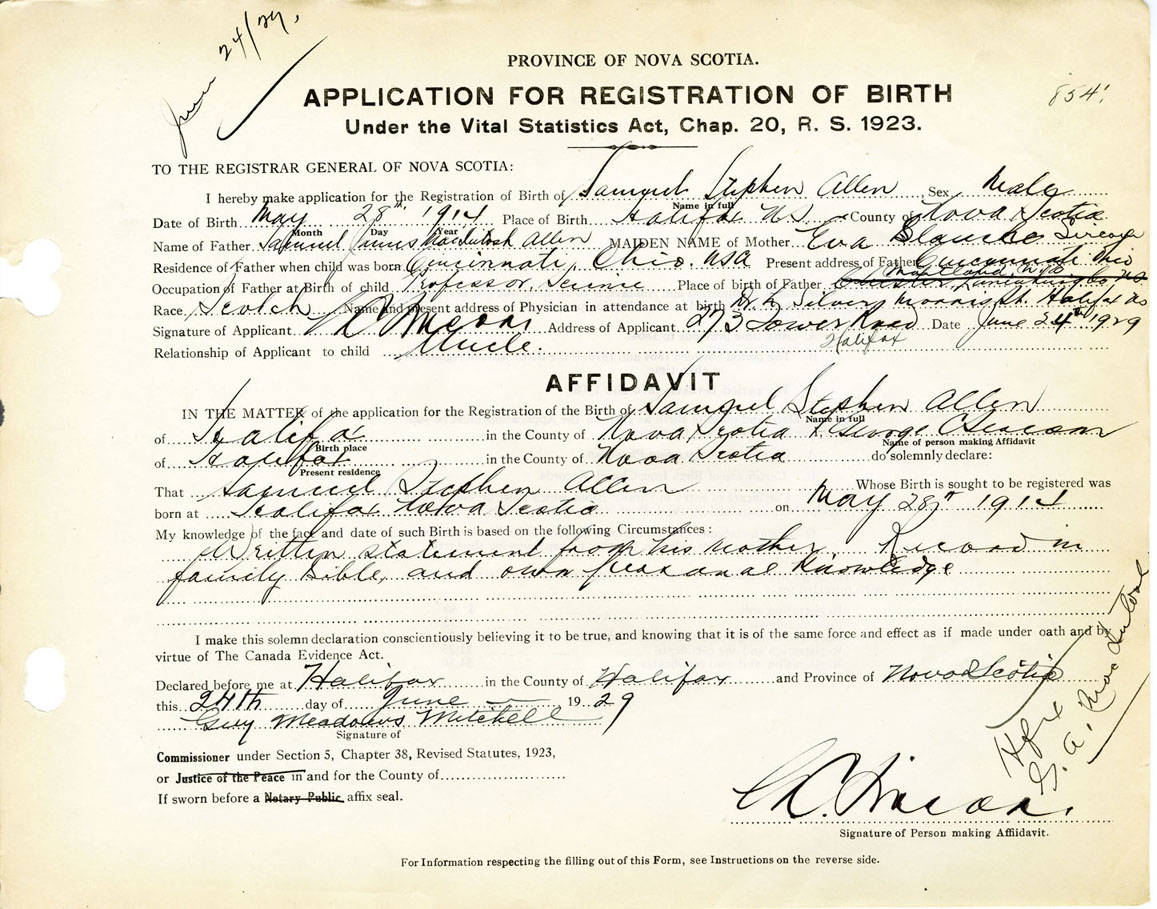 June 24/29.
PROVINCE OF NOVA SCOTIA.
APPLICATION FOR REGISTRATION OF BIRTH
854
Under the Vital Statistics Act, Chap. 20, R. S. 1923.
TO THE REGISTRAR GENERAL OF NOVA SCOTIA:
I hereby make application for the Registration of Birth of Samuel Stephen Allen Sex Male
Name in full
Date of Birth May 28th 1914 Place of Birth Halifax N.S. County of Nova Scotia
Month Day Year
Name of Father Samuel James Macintosh Allen MAIDEN NAME of Mother Eva Blanche
Residence of Father when child was born Cincinnati, Ohio. USA Present address of Father Cincinnati Ohio
Maitland, N.S.
Occupation of Father at Birth of child Professor Place of birth of Father Chester, Lunenburg Co N.S.
Race, Scotch Name and present address of Physician in attendance at birth Silver Morris St. Halifax NS
Signature of Applicant Address of Applicant 273 Tower Road Date June 24th 1929
Halifax
Relationship of Applicant to child Uncle.
AFFIDAVIT
IN THE MATTER of the application for the Registration of the Birth of Samuel Stephen Allen
Name in full
of Halifax in the County of Nova Scotia George
Birth place Name of person making Affidavit
of Halifax in the County of Nova Scotia do solemnly declare:
Present residence
That Samuel Stephen Allen Whose Birth is sought to be registered was
born at Halifax Nova Scotia on May 28th 1914
My knowledge of the fact and date of such Birth is based on the following Circumstances:
Written statement from his mother. Record in
family bible, and own personal knowledge
I make this solemn declaration conscientiously believing it to be true, and knowing that it is of the same force and effect as if made under oath and by
virtue of The Canada Evidence Act.
Declared before me at Halifax in the County of Halifax and Province of Nova Scotia
this 24th day of June 1929
Guy Meadows Mitchell
Signature of
Commissioner under Section 5, Chapter 38, Revised Statutes, 1923,
or Justice of the Peace in and for the County of
If sworn before a Notary Public affix seal.
Hfx
G. A.
Signature of Person making Affiidavit.
For Information respecting the filling out of this Form, see Instructions on the reverse side.